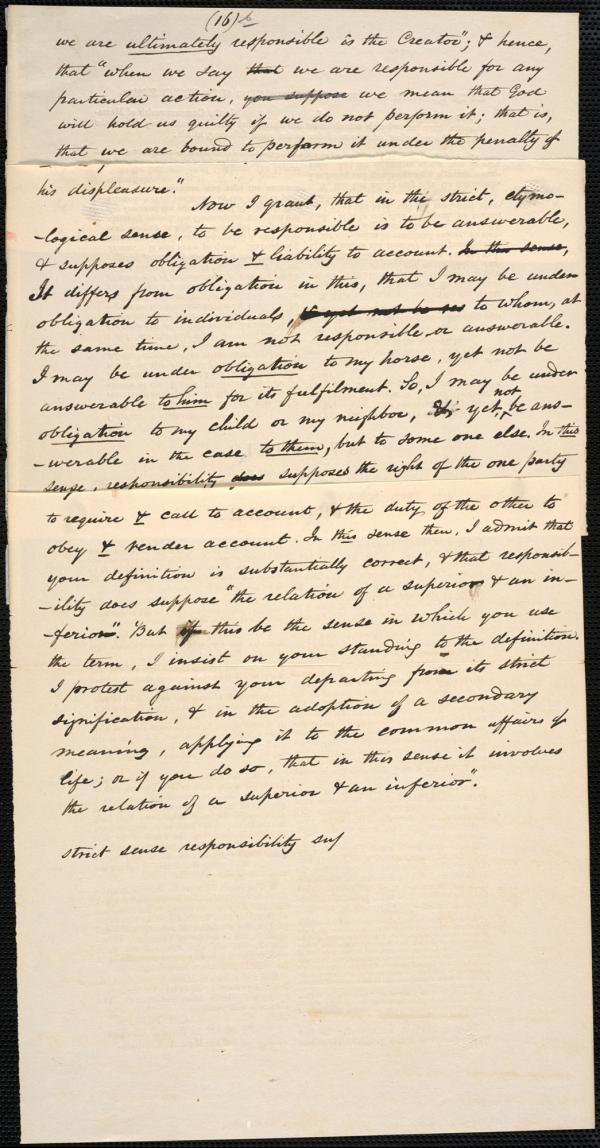 (16) b
we are ultimately responsible is the Creator"; & hence,
that "when we say that we are responsible for any
particular action, you suppose we mean that God
will hold us guilty if we do not perform it; that is,
that we are bound to perform it under the penalty of
his displeasure."
Now I grant, that in the strict, etymo-
-logical sense, to be responsible is to be answerable,
& supposes obligation & liability to account. In this sense,
It differs from obligation in this, that I may be under
obligation to individuals, & yet not be res to whom, at
the same time, I am not responsible or answerable.
I may be under obligation to my horse, yet not be
answerable to him for its fulfilment. So, I may be under
obligation to my child or my neighbor, & yet not be ans-
-werable in the case to them, but to some one else. In this
sense, responsibility does supposes the right of the one party
to require & call to account, & the duty of the other to
obey & render account. In this sense then, I admit that
your definition is substantially correct, & that responsib-
-ility does suppose "the relation of a superior & an in-
-ferior". But if this be the sense in which you use
the term, I insist on your standing to the definition.
I protest against your departing from its strict
signification, & in the adoption of a secondary
meaning, applying it to the common affairs of
life; or if you do so, that in this sense it involves
the relation of a superior & an inferior".
strict sense responsibility sup